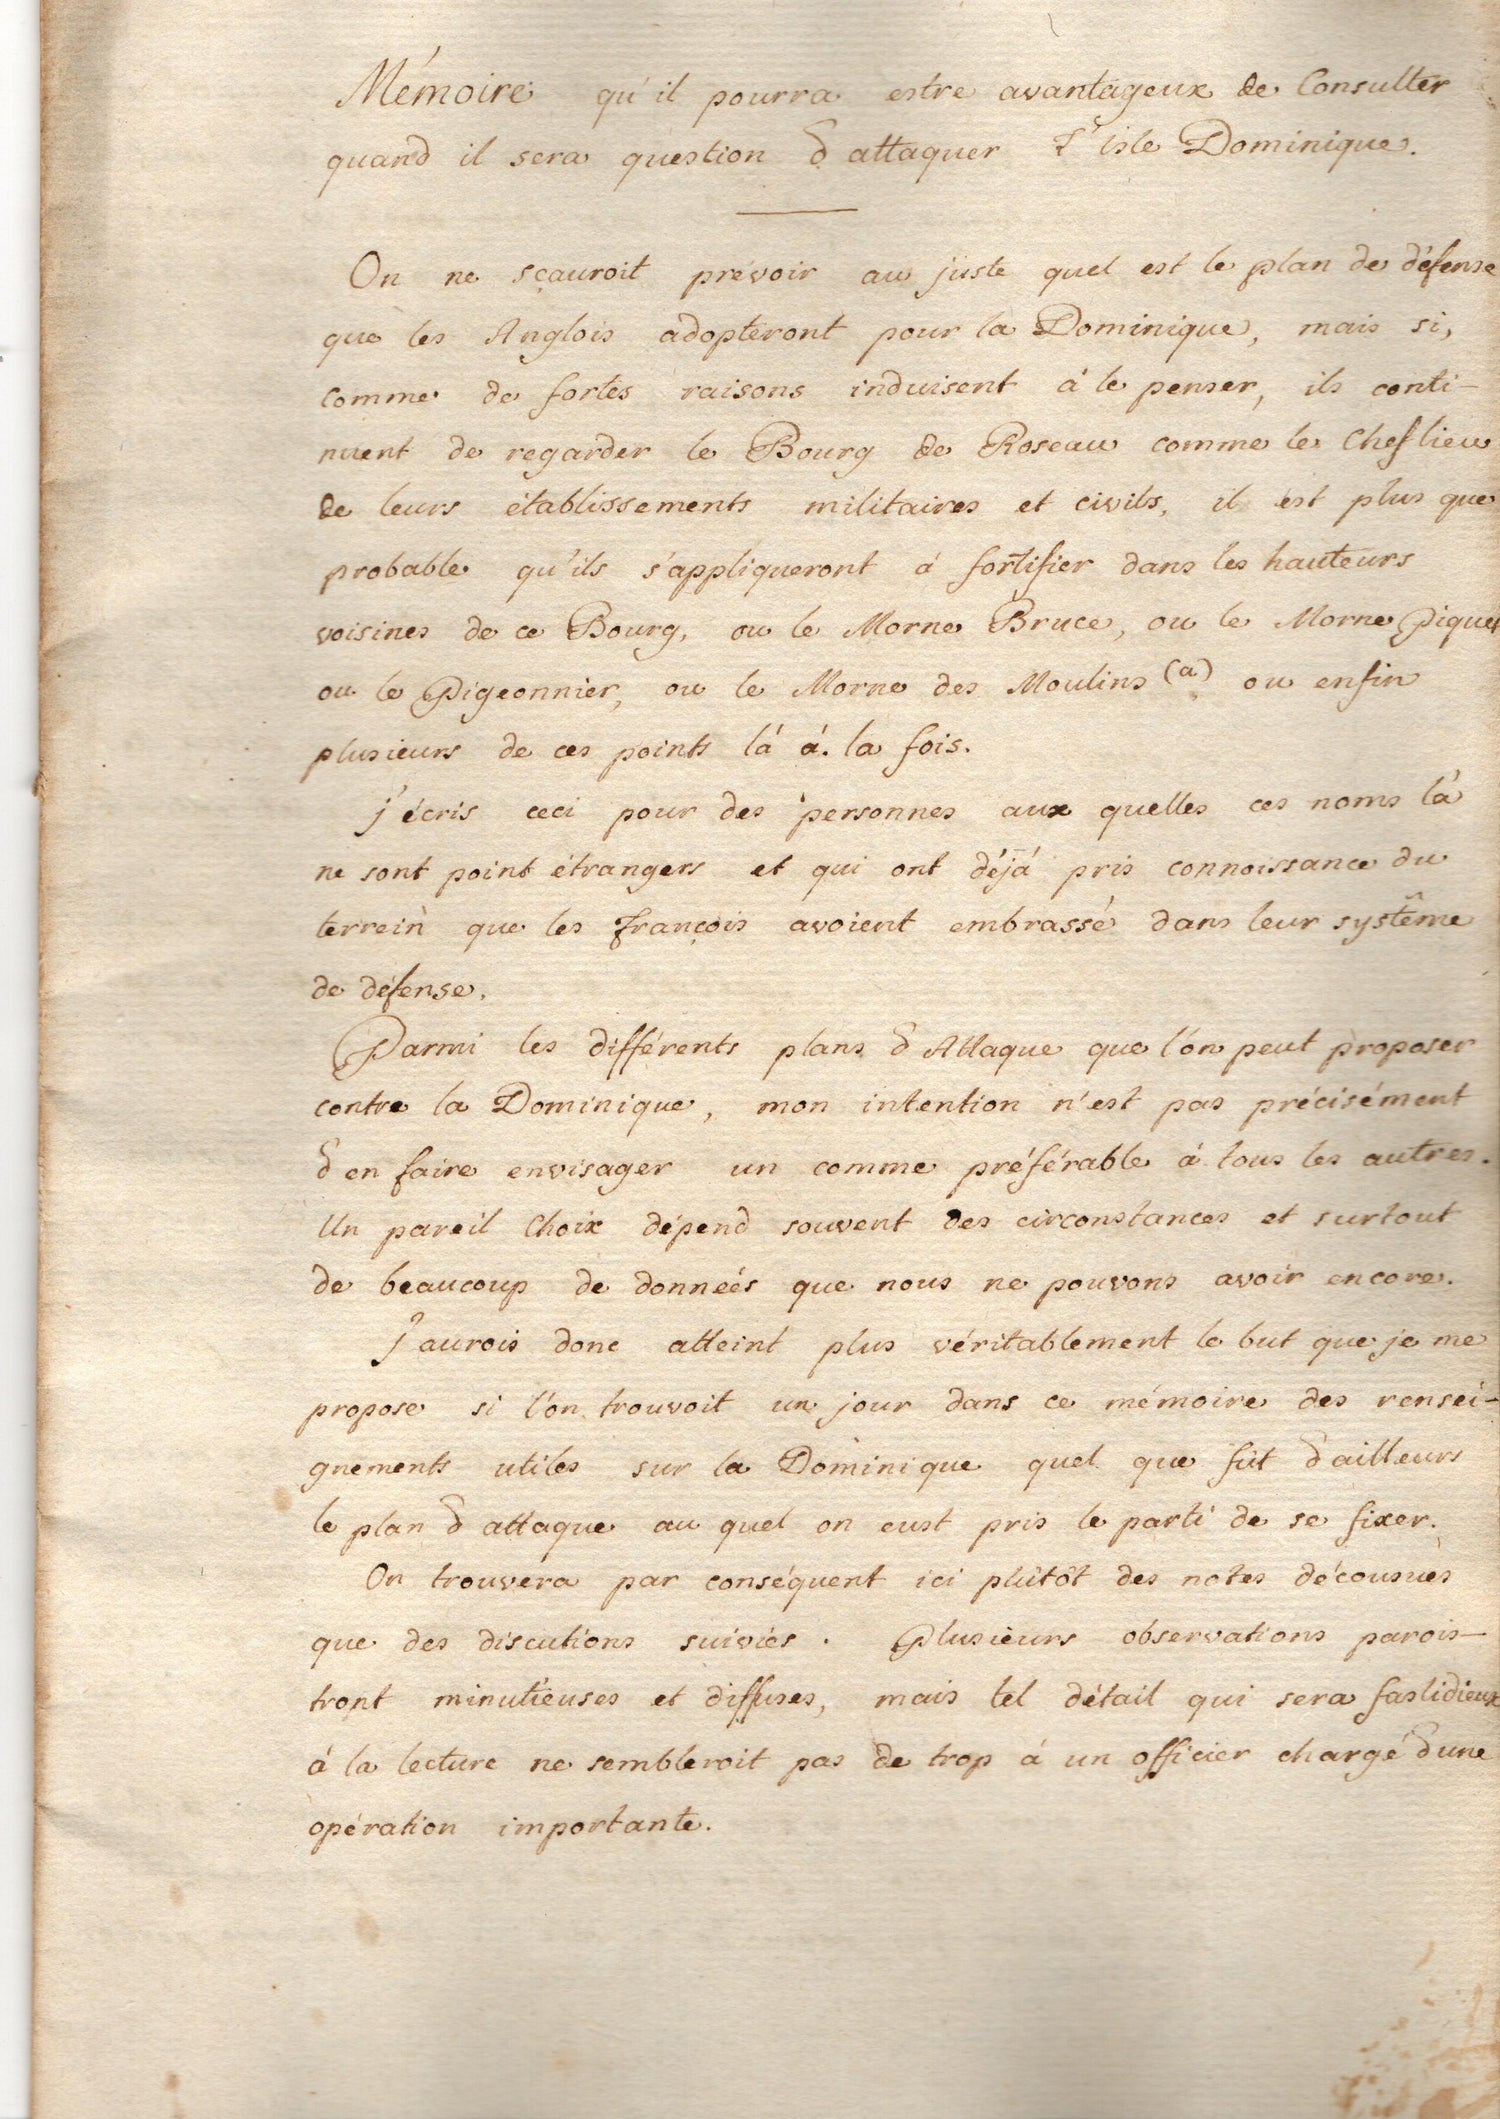 Mémoire qu'il pourra estre avantageux de Consulter
quand il sera question d'attaquer L'isle Dominique.
On ne sçauroit prévoir au juste quel est le plan de défense
que les Anglois adopteront pour la Dominique, mais si,
comme de fortes raisons induisent à le penser, ils conti-
nuent de regarder le Bourg de Roseau comme le Chef lieu
de leurs établissements militaires et civils, il est plus que
probable qu'ils s'appliqueront à fortifier dans les hauteurs
voisines de ce Bourg, ou le Morne Bruce, ou le Morne Piquet
ou le Pigeonnier, ou le Morne des Moulins (a) ou enfin
plusieurs de ces points là à la fois.
J'écris ceci pour des personnes aux quelles ces noms là
ne sont point étrangers et qui ont déjà pris connoissance du
terrein que les françois avoient embrassé dans leur systême
de défense.
Parmi les différents plans d'Attaque que l'on peut proposer
contre la Dominique, mon intention n'est pas précisément
d'en faire envisager un comme préférable à tous les autres.
Un pareil Choix dépend souvent des circonstances et surtout
de beaucoup de données que nous ne pouvons avoir encore.
J'aurois donc atteint plus véritablement le but que je me
propose si l'on trouvoit un jour dans ce mémoire des rensei-
gnements utiles sur la Dominique quel que fut d'ailleurs
le plan d'attaque au quel on eust pris le parti de se fixer.
On trouvera par conséquent ici plûtôt des notes décousues
que des discutions suivies. Plusieurs observations parois-
tront minutieuses et diffuses, mais tel détail qui sera fastidieux
à la lecture ne sembleroit pas de trop à un officier chargé d'une
opération importante.